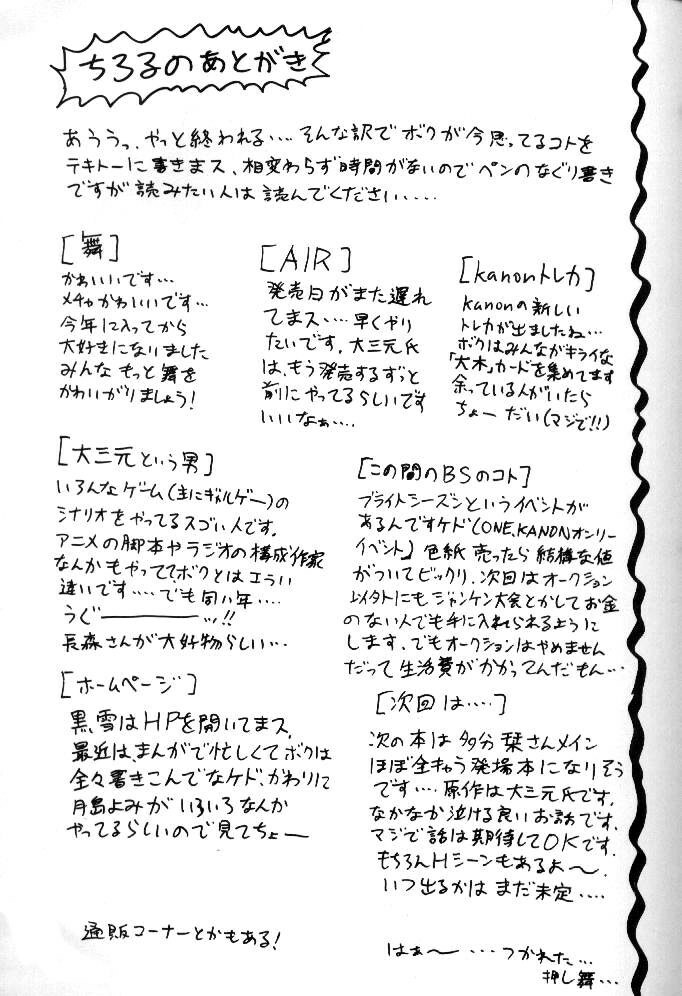 ちろるのあとがき
あううっ、やっと終われる‥‥そんな訳でボクが今思ってるコトを
テキトーに書きまス、相変わらず時間がないのでペンのなぐり書き
ですが読みたい人は読んでください‥‥
[舞]
かわいいです…
メチャかわいいです…
今年に入ってから
大好きになりました
みんなもっと舞を
かわいがりましょう!
[AIR]
発売日がまた遅れ
てまス‥‥早くやり
たいです。大三元氏
は、もう発売するずっと
前にやってるらしいです
いいなぁ‥‥
[kanonトレカ]
kanonの新しい
トレカが出ましたね…
ボクはみんながキライな
「大木」カードを集めてます
余っている人がいたら
ちょーだい(マジで!!)
[大三元という男]
いろんなゲーム(主にギャルゲー)の
シナリオをやってるスゴい人です。
アニメの脚本やラジオの構成作家
なんかもやっててボクとはエラい
違いです‥‥でも同い年‥‥
うぐーーーーッ!!
長森さんが大好物らしい…
[この間のBSのコト]
ブライトシーズンというイベントが
あるんですケド(ONE,KANONオンリー
イベント)色紙売ったら結構な値
がついてビックリ、次回はオークション
以外にもジャンケン大会とかしてお金
のない人でも手に入れられるように
します、でもオークションはやめません
だって生活費がかかってんだもん…
[ホームページ]
黒雪はHPを開いてまス、
最近は、まんがで忙しくてボクは
全々書きこんでなケド、かわりに
月島よみがいろいろなんか
やってるらしいので見てちょー
通販コーナーとかもある!
[次回は‥‥]
次の本は多分栞さんメイン
ほぼ全キャラ登場本になりそう
です‥‥原作は大三元氏です、
なかなか泣ける良いお話です、
マジで話は期待してOKです。
もちろんHシーンもあるよ〜、
いつ出るかはまだ未定‥‥
はぁ〜…つかれた…
押し舞…